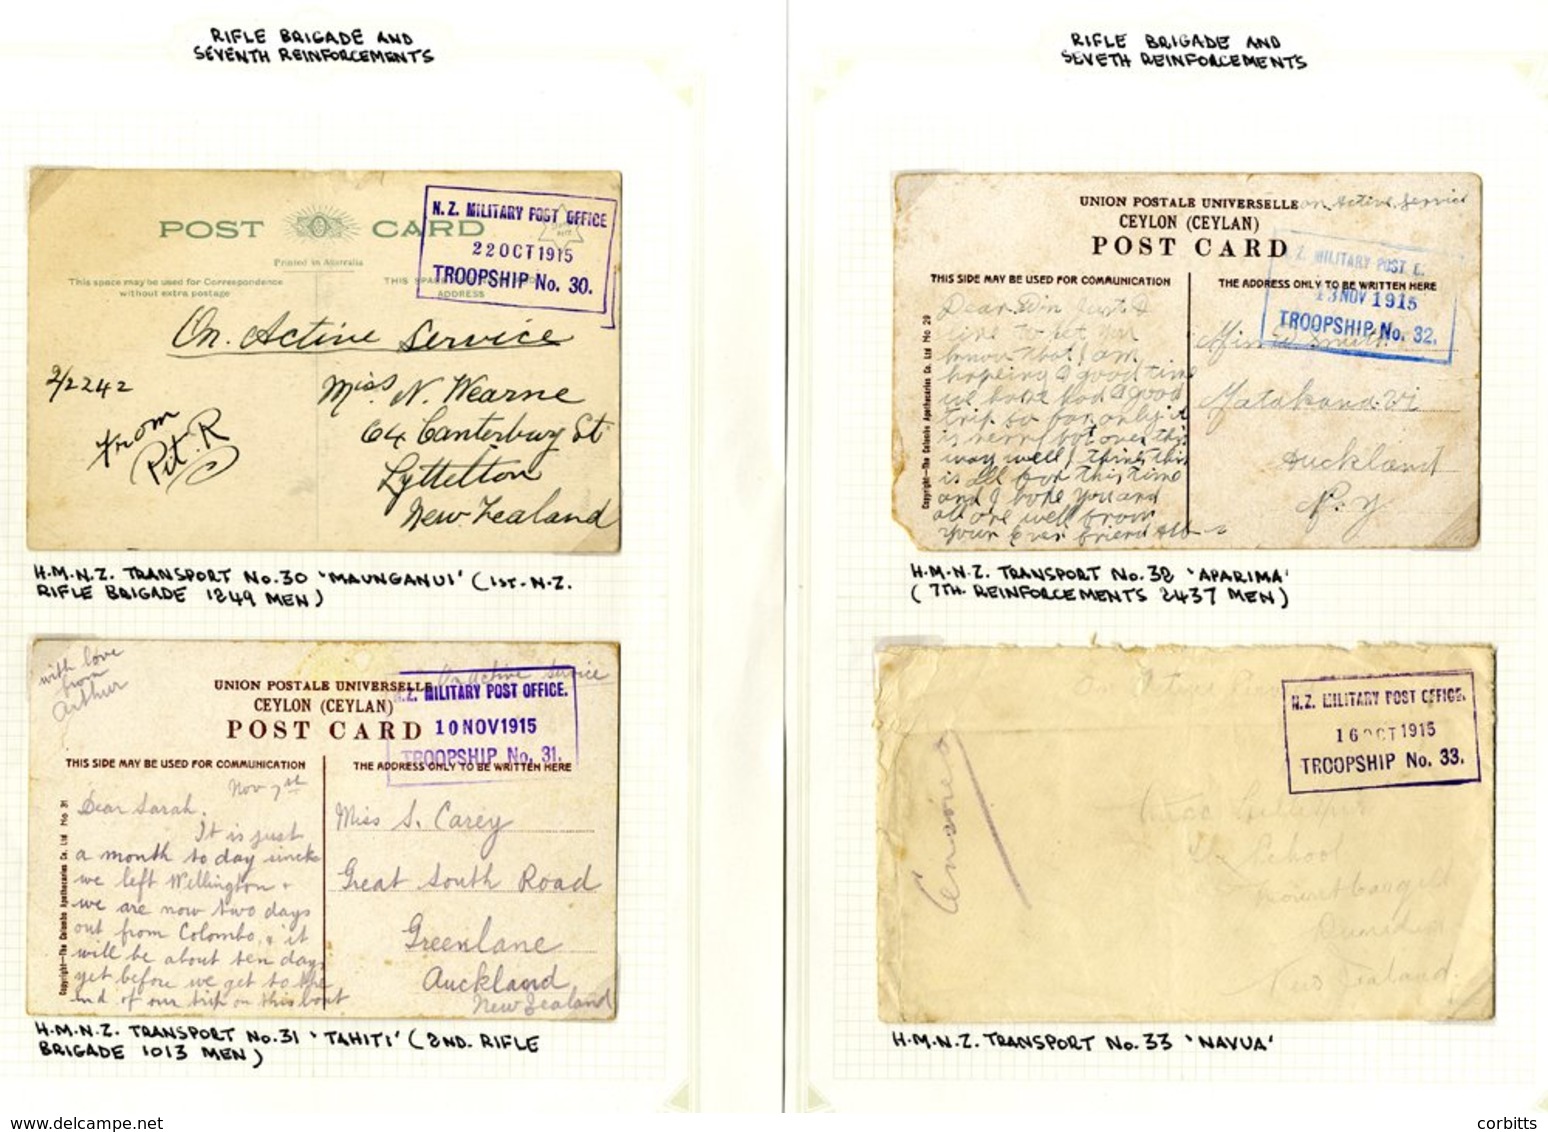 RIFLE BRIGADE AND
SEVENTH REINFORCEMENTS
POST CARD
Printed in Australia
This space may be used for Correspondence
without extra postage
THIS
ADDRESS
N.Z. MILITARY POST OFFICE
22 OCT 1915
TROOPSHIP No. 30.
On Active Service
2/2242
From
Miss N. Wearne
64 Canterbury St
Lyttelton
New Zealand
H.M.N.Z. TRANSPORT No.30 'MAUNGANUI' (1ST. N.Z.
RIFLE BRIGADE 1249 MEN)
with love
from
Arthur
On Active Service
UNION POSTALE UNIVERSELLE
CEYLON (CEYLAN)
POST CARD
N.Z. MILITARY POST OFFICE.
10 NOV 1915
TROOPSHIP No. 31.
THIS SIDE MAY BE USED FOR COMMUNICATION
THE ADDRESS ONLY TO BE WRITTEN HERE
Copyright—The Colombo Apothecaries Co. Ltd No 31
Nov 7th
Dear Sarah.
It is just
a month to day since
we left Wellington &
we are now two days
out from Colombo, & it
will be about ten days
yet before we get to the
end of our trip on this boat
Miss S. Carey
Great South Road
Greenlane
Auckland
New Zealand
H.M.N.Z. TRANSPORT No.31 'TAHITI' (2ND. RIFLE
BRIGADE 1013 MEN)
RIFLE BRIGADE AND
SEVETH REINFORCEMENTS
UNION POSTALE UNIVERSELLE
on Active Service
CEYLON (CEYLAN)
POST CARD
Z. MILITARY POST
13 NOV 1915
TROOPSHIP No. 32.
THIS SIDE MAY BE USED FOR COMMUNICATION
THE ADDRESS ONLY TO BE WRITTEN HERE
Copyright—The Colombo Apothecaries Co. Ltd No 29
Dear Win Just a
line to let you
know that I am
hopeing a good time
we have had a good
trip so far only it
is verry hot over this
way well I think this
is all for this time
and I hope you and
all are well from
your Ever friend
Smith
Matakana
Auckland
N. Z
H.M.N.Z. TRANSPORT No.32 'APARIMA'
(7TH. REINFORCEMENTS 2437 MEN)
N.Z. MILITARY POST OFFICE.
16 OCT 1915
TROOPSHIP No. 33.
Censored
School
Dunedin
New Zealand.
H.M.N.Z. TRANSPORT No.33 'NAVUA'
www.delcampe.net
corbitts